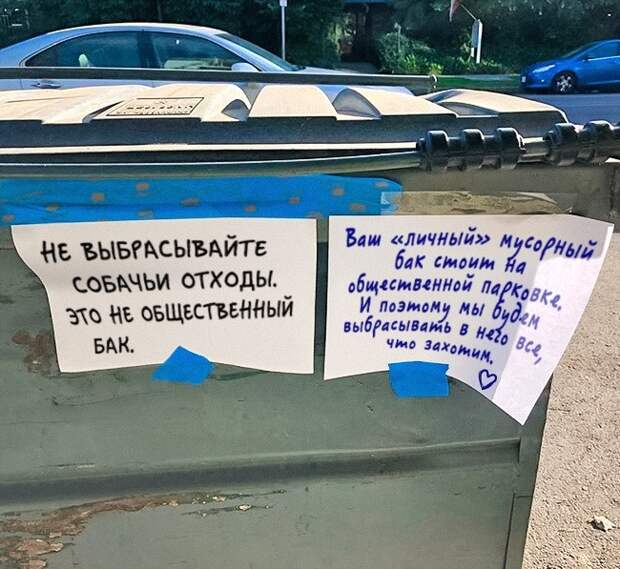 НЕ ВЫБРАСЫВАЙТЕ
СОБАЧЬИ ОТХОДЫ.
ЭТО НЕ ОБЩЕСТВЕННЫЙ
БАК.
Ваш «личный» мусорный
бак стоит на
общественной парковке.
И поэтому мы будем
выбрасывать в него все,
что захотим.